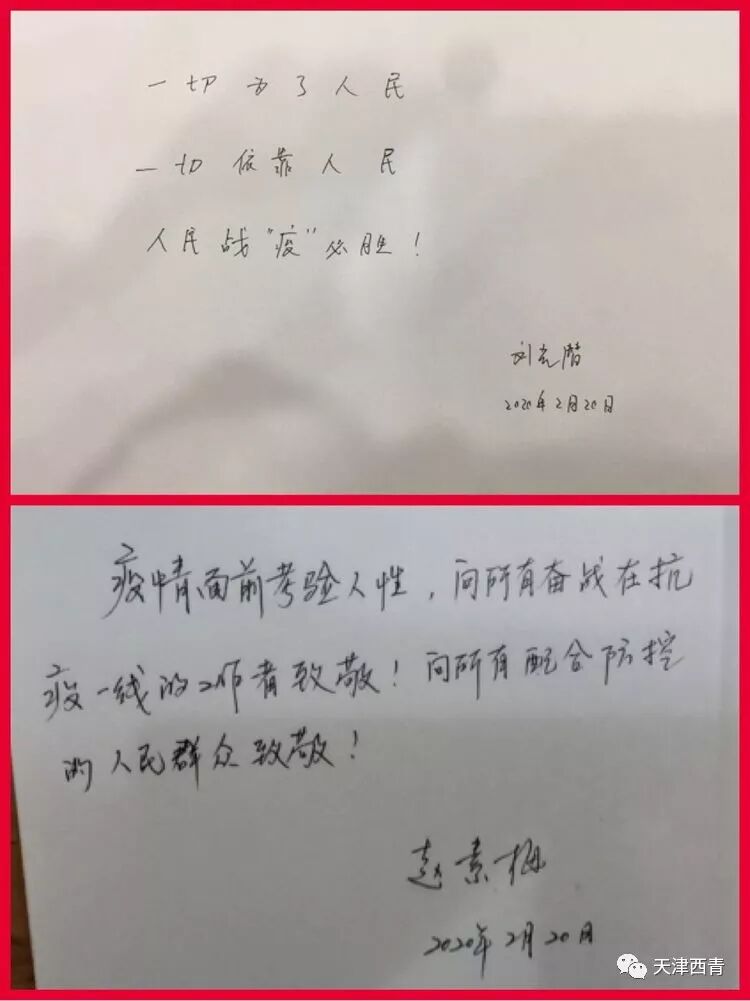 一切为了人民
一切依靠人民
人民战“疫”必胜！
2020年2月20日
疫情面前考验人性，向所有奋战在抗
疫一线的工作者致敬！向所有配合防控
的人民群众致敬！
赵素梅
2020年2月20日
天津西青